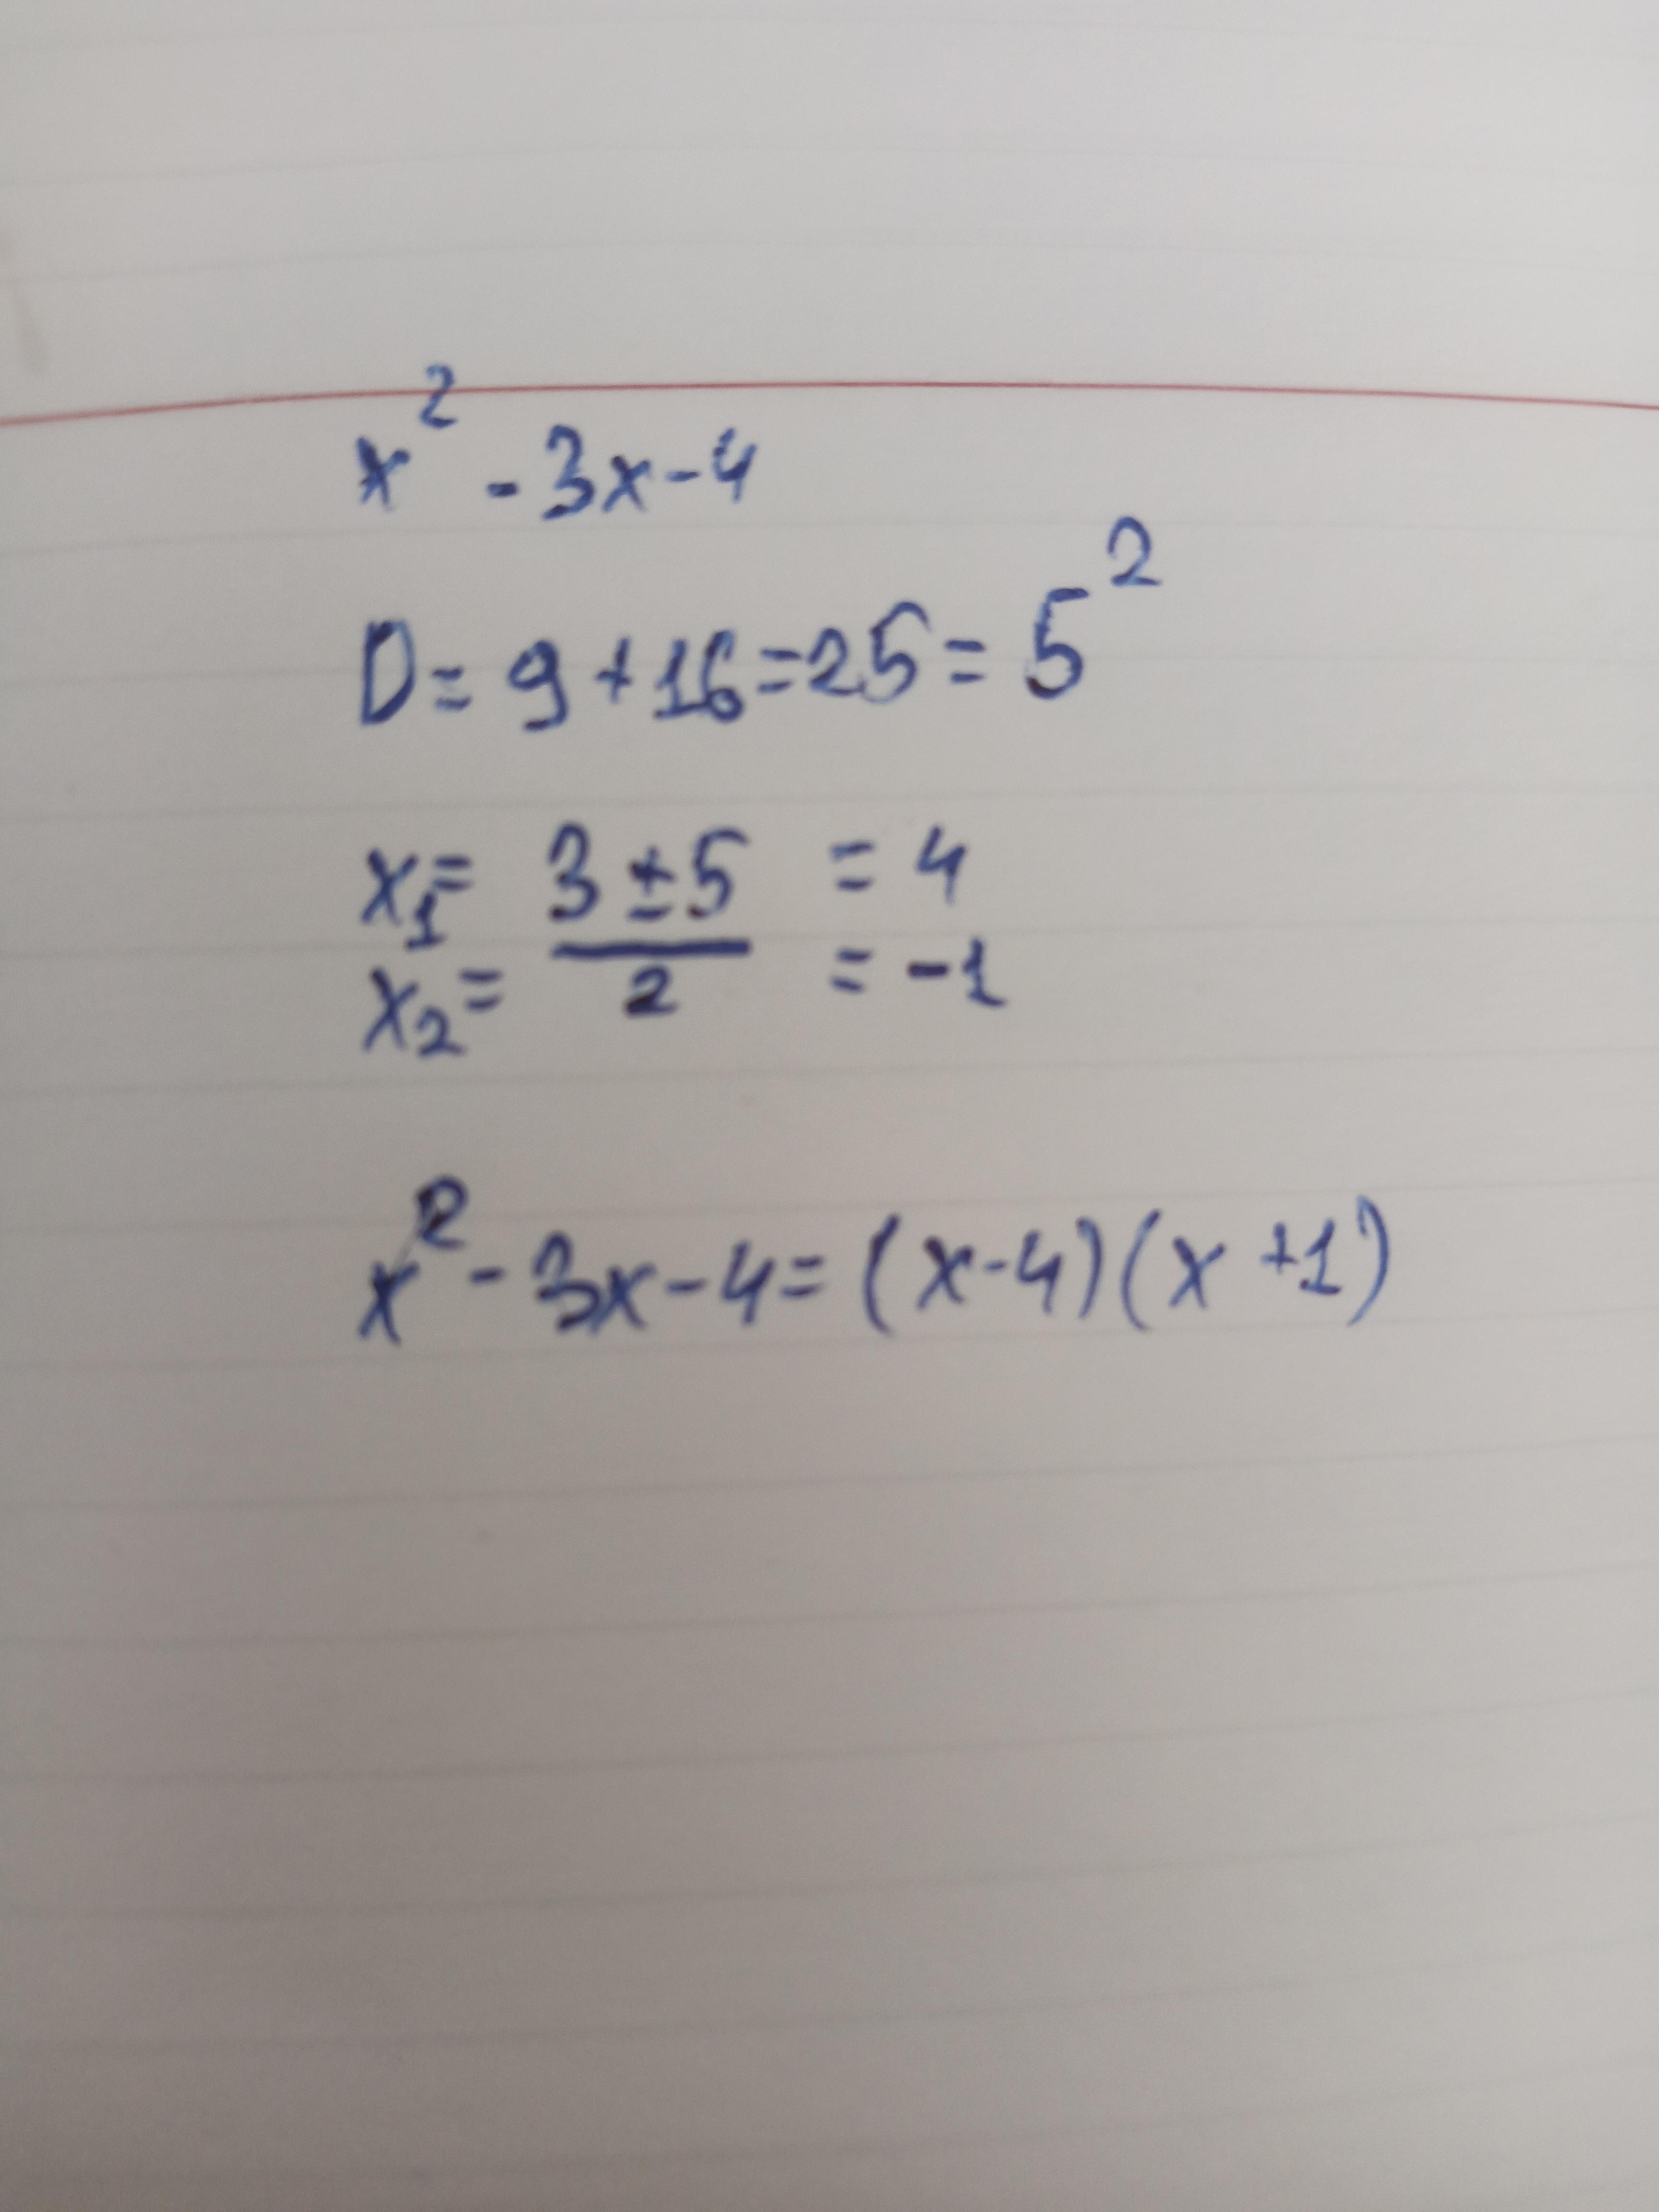 x² - 3x - 4
D = 9 + 16 = 25 = 5²
x₁ = 3 ± 5 = 4
x₂ = 2 = -1
x² - 3x - 4 = (x - 4)(x + 1)